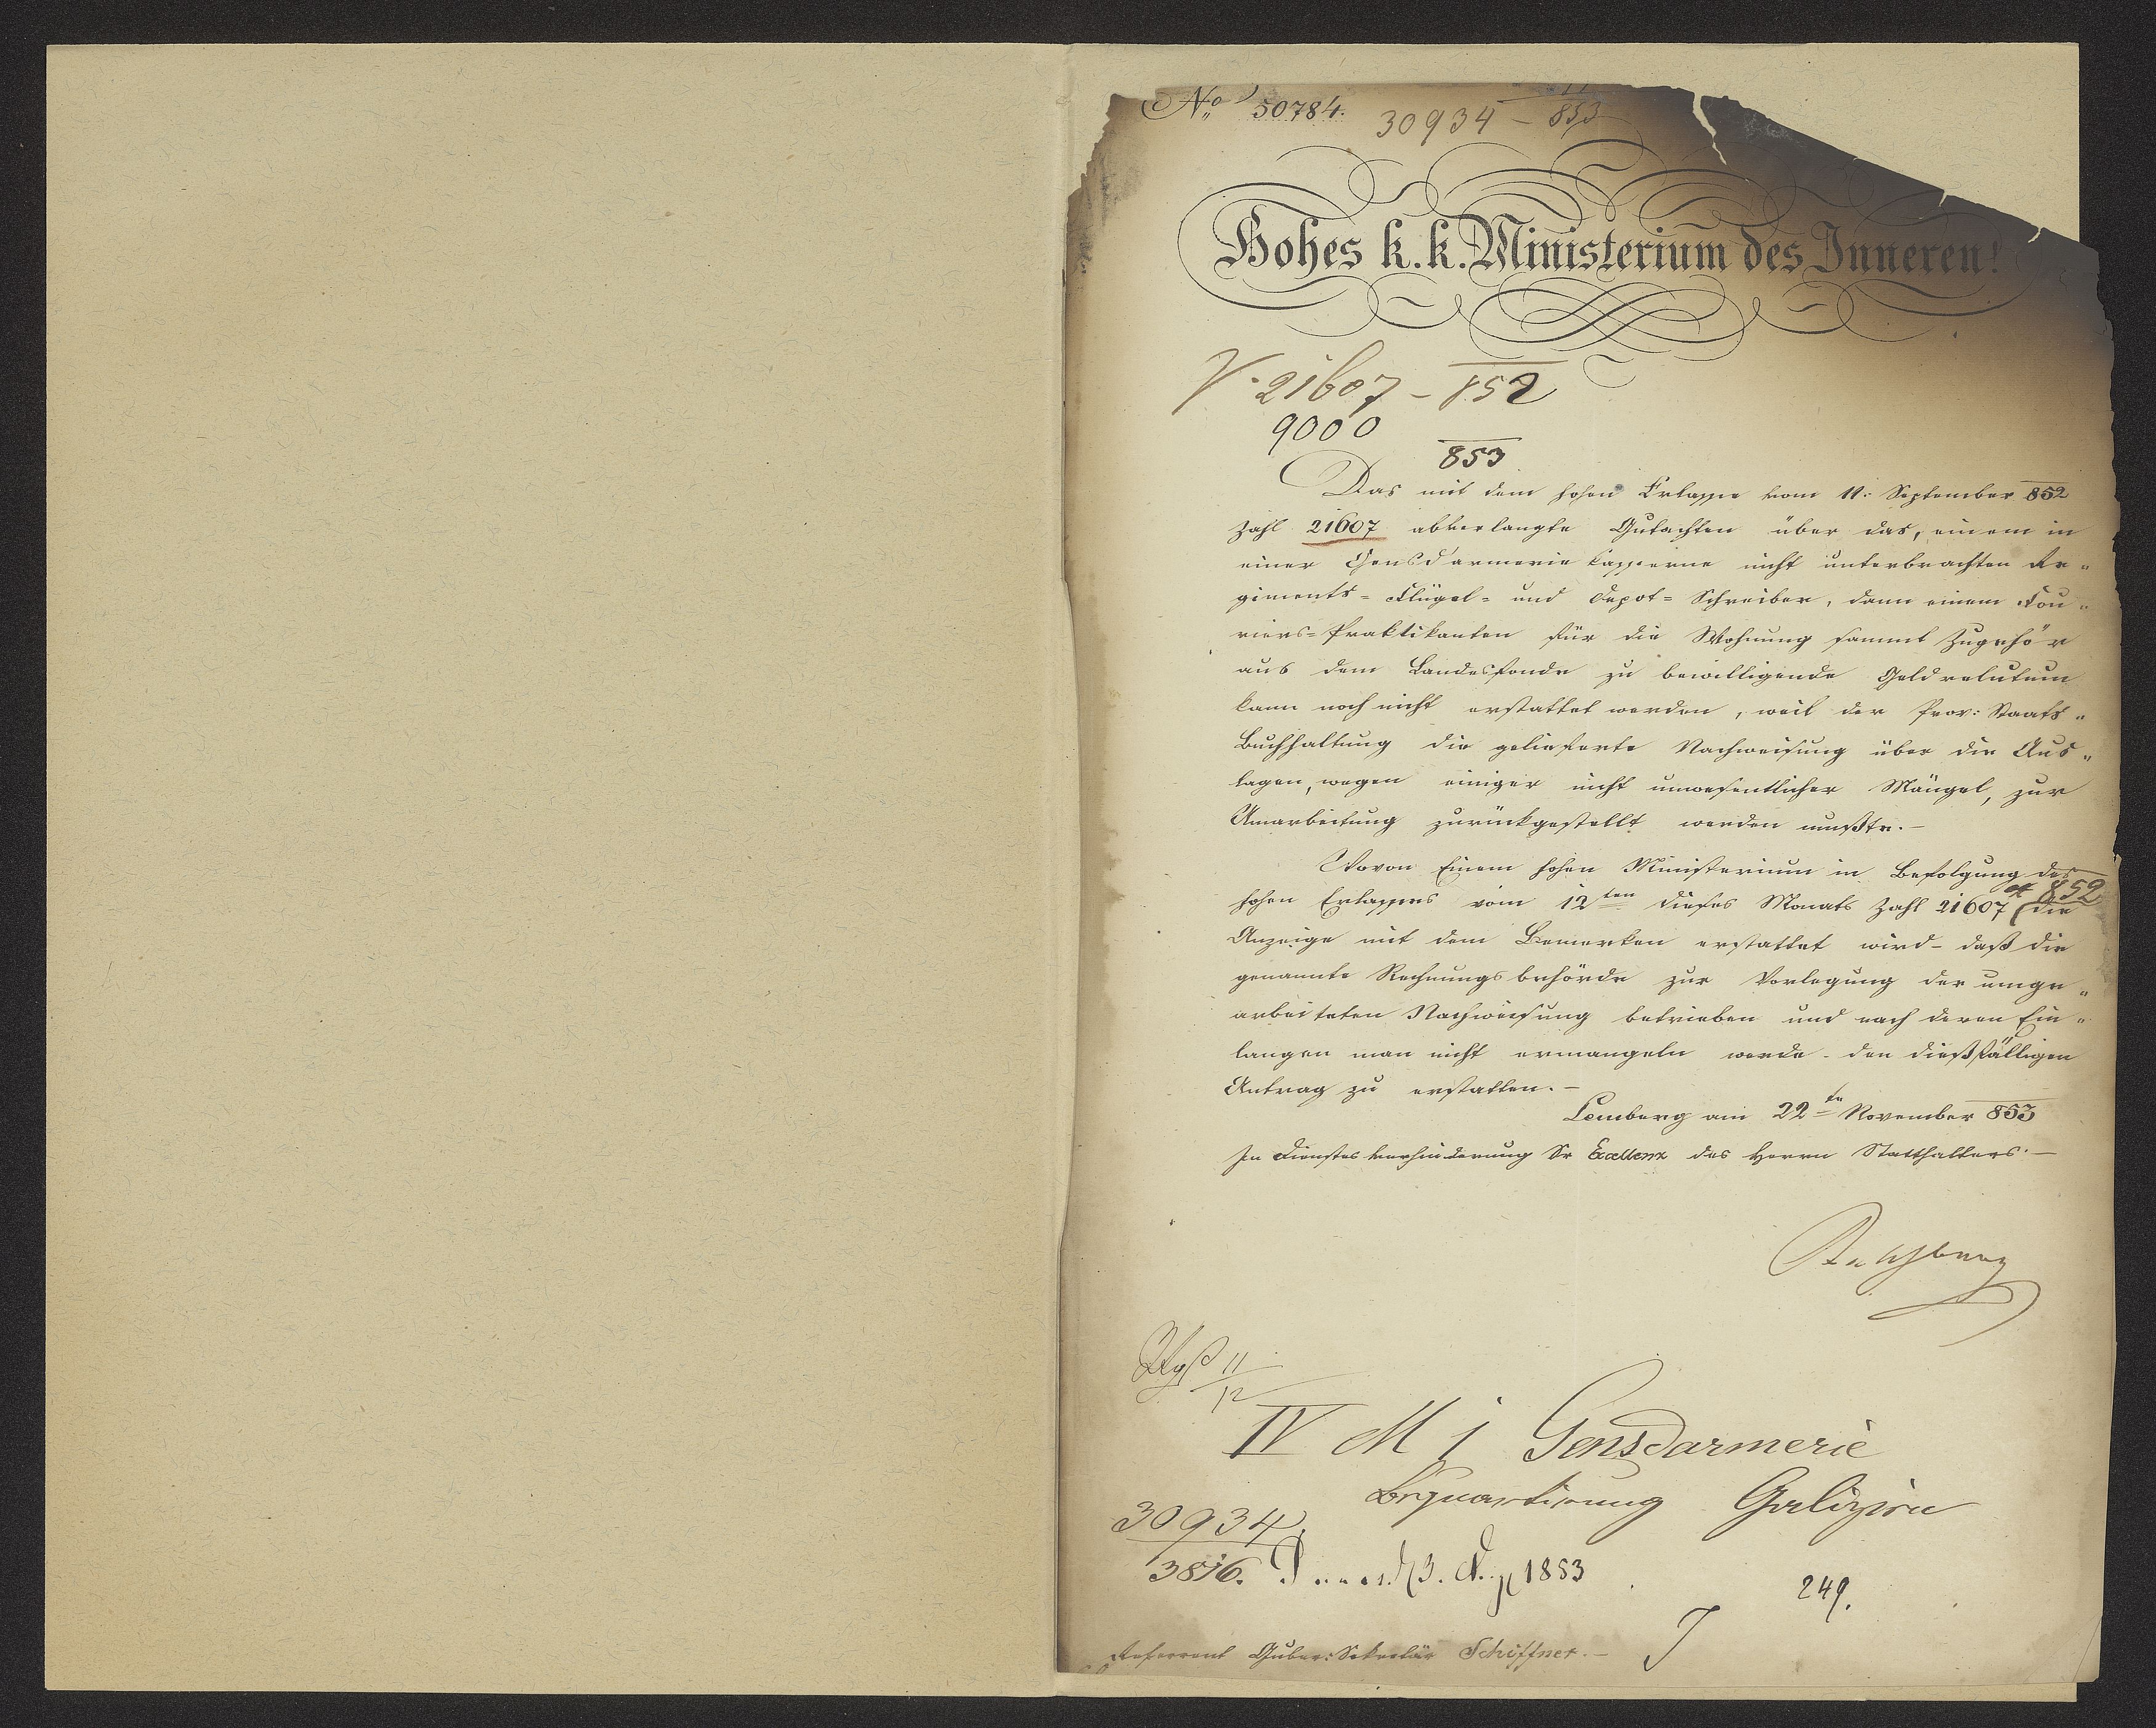 No 50784. 30934 – 853
Hohes k. k. Ministerium des Inneren!
V. 21607 – 852
9000
853
Das mit dem hohen Erlasse vom 11. September 852
Zahl 21607 abverlangte Gutachten über das, einem in
einer Gensd'armerie Kasserne nicht unterbrachten Re„
giments= Flügel= und Depot= Schreiber, dann einem Fou„
riers=Praktikanten für die Wohnung sammt Zugehör
aus dem Landesfonde zu bewilligende Geldrelutum
kann noch nicht erstattet werden, weil der Prov: Staats„
Buchhaltung die gelieferte Nachweisung über die Aus„
lagen, wegen einiger nicht unwesentlicher Mängel, zur
Umarbeitung zurückgestellt werden mußte.–
Wovon Einem hohen Ministerium in Befolgung des
hohen Erlasses vom 12ten dieses Monats Zahl 21607 852 die
Anzeige mit dem Bemerken erstattet wird– daß die
genannte Rechnungsbehörde zur Vorlegung der umge„
arbeiteten Nachweisung betrieben und nach deren Ein„
langen man nicht ermangeln werde– den dießfälligen
Antrag zu erstatten.–
Lemberg am 22te November 853
In Dienstesverhinderung Sr Excellenz des Herrn Statthalters.–
11/12
IV M 1 Gensdarmerie
Bequartirung Galizien
30934
3816. 3. 1853
249.
Referent Guber: Sekretär Schiffner.–